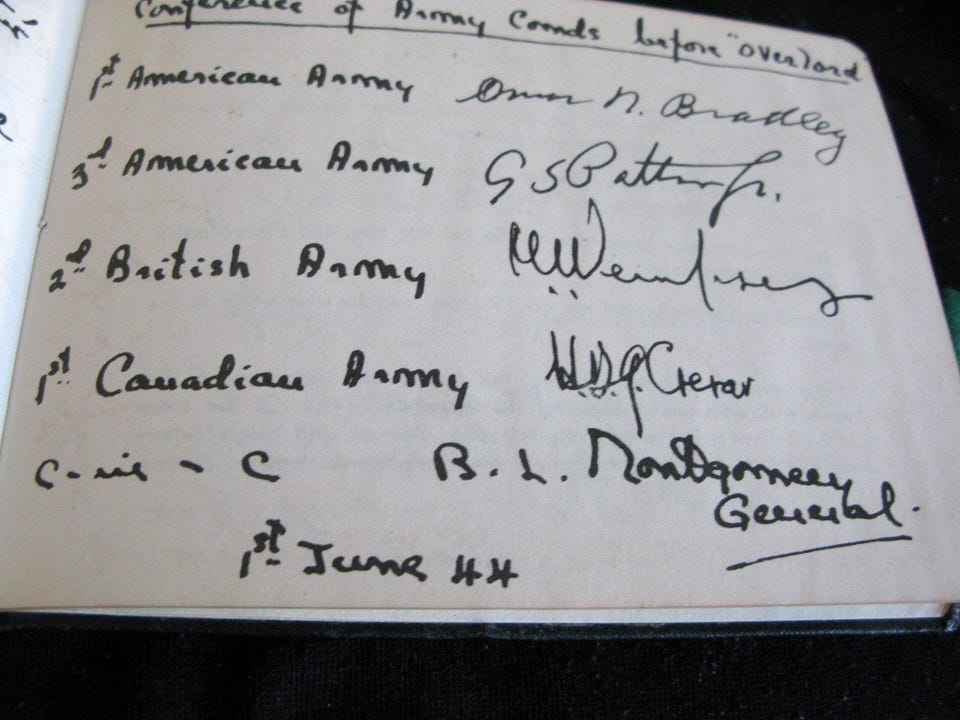 Conference of Army Comds before "Overlord"
1st American Army Omar N. Bradley
3d American Army G S Patton Jr.
2d British Army
1st Canadian Army H.D.G. Crerar
C-in-C B. L. Montgomery
General.
1st June 44